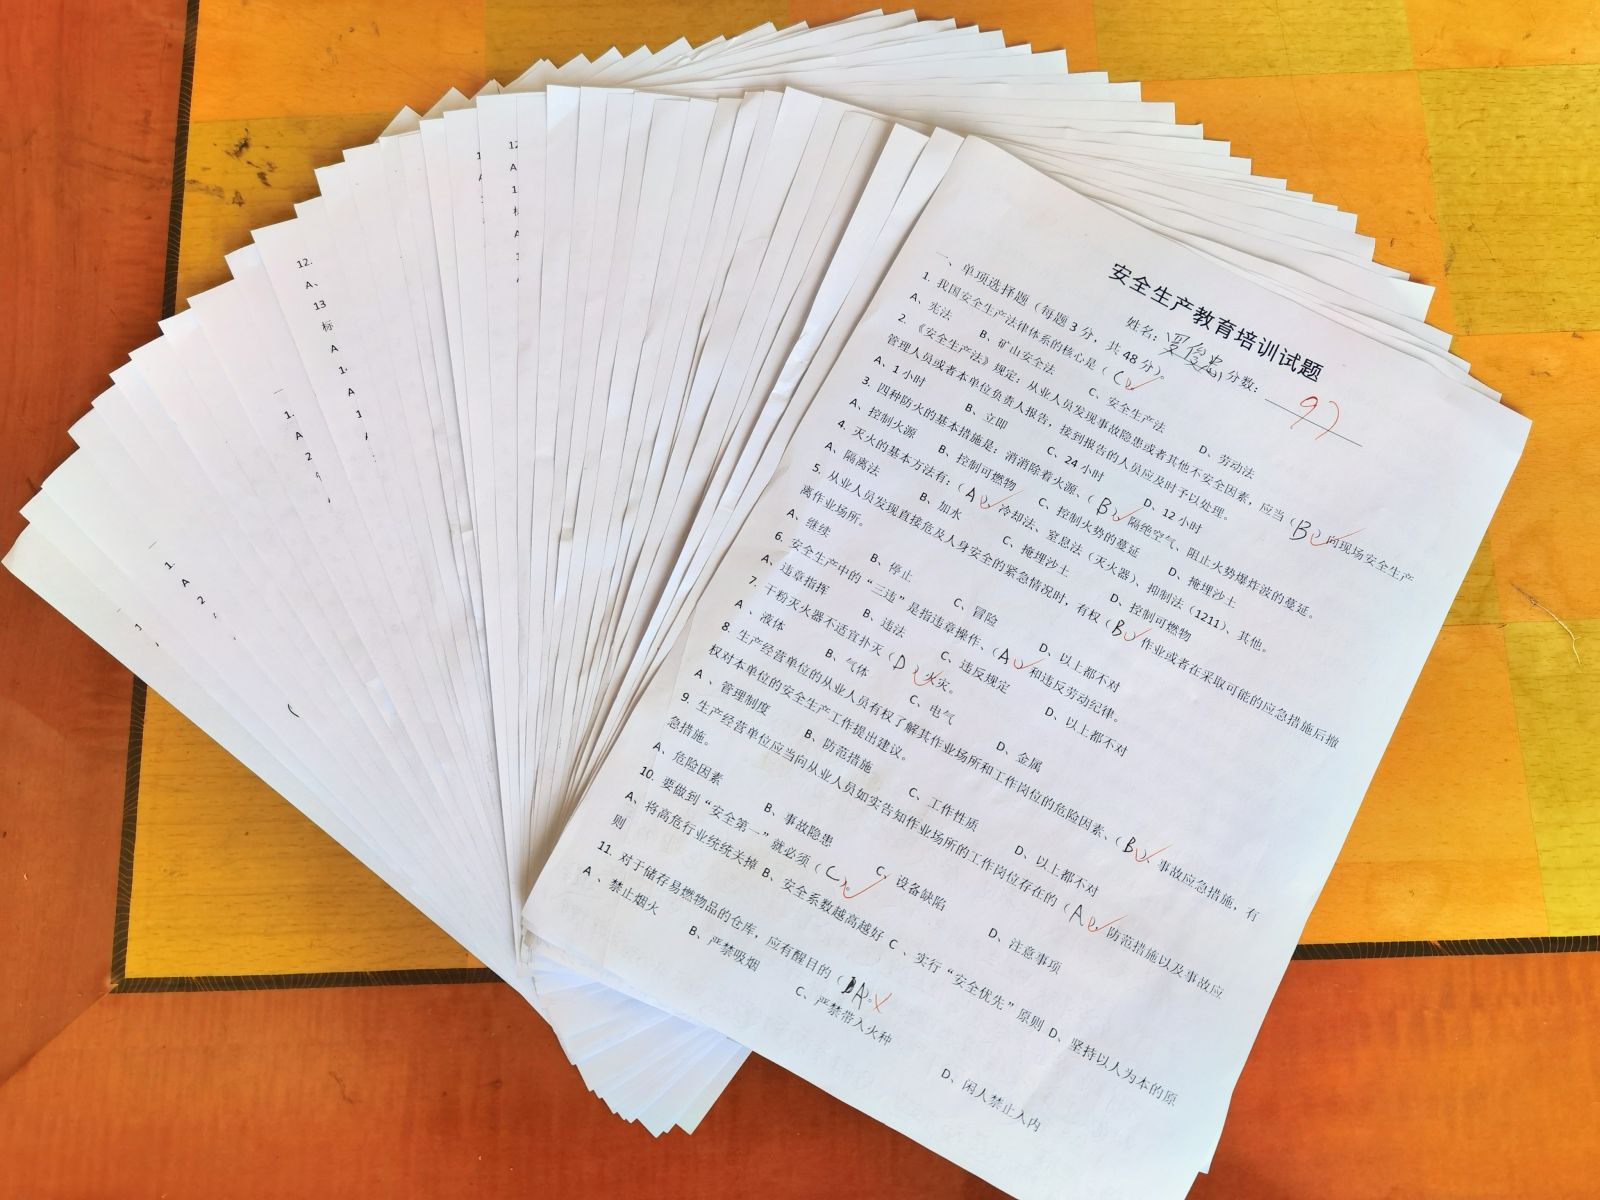 安全生产教育培训试题
姓名： 分数：97
一、单项选择题（每题3分，共48分）。
1. 我国安全生产法律体系的核心是（C）
A、宪法 B、矿山安全法 C、安全生产法 D、劳动法
2. 《安全生产法》规定：从业人员发现事故隐患或者其他不安全因素，应当（B）向现场安全生产
管理人员或者本单位负责人报告，接到报告的人员应及时予以处理。
A、1小时 B、立即 C、24小时 D、12小时
3. 四种防火的基本措施是：消消除着火源、（B）隔绝空气、阻止火势爆炸波的蔓延。
A、控制火源 B、控制可燃物 C、控制火势的蔓延 D、掩埋沙土
4. 灭火的基本方法有：（A）冷却法、窒息法（灭火器）、抑制法（1211）、其他。
A、隔离法 B、加水 C、掩埋沙土 D、控制可燃物
5. 从业人员发现直接危及人身安全的紧急情况时，有权（B）作业或者在采取可能的应急措施后撤
离作业场所。
A、继续 B、停止 C、冒险 D、以上都不对
6. 安全生产中的“三违”是指违章操作、（A）和违反劳动纪律。
A、违章指挥 B、违法 C、违反规定 D、以上都不对
7. 干粉灭火器不适宜扑灭（D）火灾。
A、液体 B、气体 C、电气 D、金属
8. 生产经营单位的从业人员有权了解其作业场所和工作岗位的危险因素、（B）、事故应急措施，有
权对本单位的安全生产工作提出建议。
A、管理制度 B、防范措施 C、工作性质 D、以上都不对
9. 生产经营单位应当向从业人员如实告知作业场所的工作岗位存在的（A）、防范措施以及事故应
急措施。
A、危险因素 B、事故隐患 C、设备缺陷 D、注意事项
10. 要做到“安全第一”就必须（C）。
A、将高危行业统统关掉 B、安全系数越高越好 C、实行“安全优先”原则 D、坚持以人为本的原
则
11. 对于储存易燃物品的仓库，应有醒目的（A）。
A、禁止烟火 B、严禁吸烟 C、严禁带入火种 D、闲人禁止入内
12.
A、
13
标
A
1
A
1
1.
A
2
1.
A
2